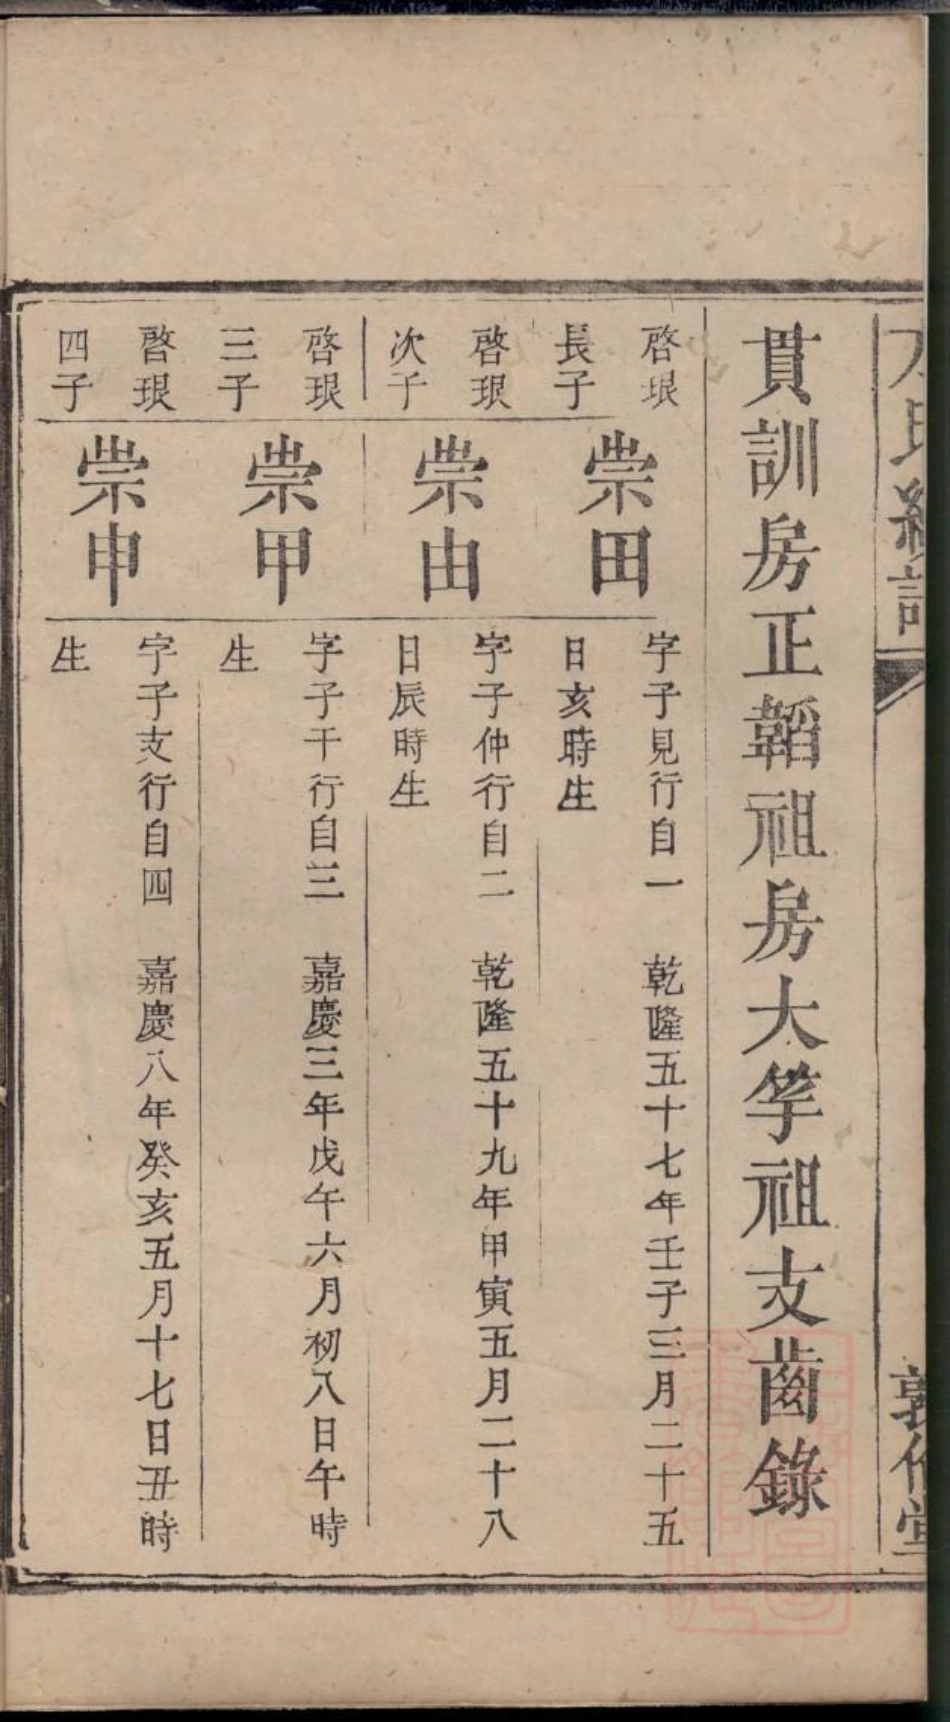 貫訓房正韜祖房大竽祖支齒錄
啓珢
長子
崇田
字子見行自一 乾隆五十七年壬子三月二十五
日亥時生
啓珢
次子
崇由
字子仲行自二 乾隆五十九年甲寅五月二十八
日辰時生
啓珢
三子
崇甲
字子干行自三 嘉慶三年戊午六月初八日午時
生
啓珢
四子
崇申
字子支行自四 嘉慶八年癸亥五月十七日丑時
生